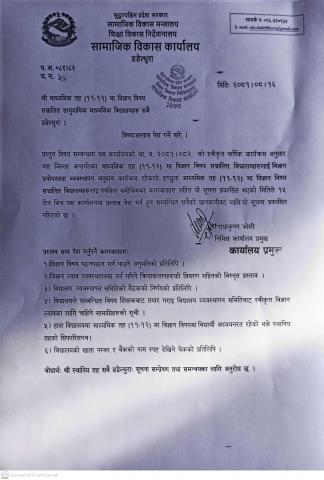 सुदूरपश्चिम प्रदेश सरकार
सामाजिक विकास मन्त्रालय
शिक्षा विकास निर्देशनालय
सामाजिक विकास कार्यालय
डडेल्धुरा
सम्पर्क नं. ०९६-४२०१४२
प. स. ०८१/८२
च. न. ३७
मिति: २०८१।०८।१६
श्री माध्यमिक तह (११-१२) मा विज्ञान विषय
सञ्चालित सामुदायिक माध्यमिक विद्यालयहरु सबै
डडेल्धुरा ।
विषय:प्रस्ताव पेश गर्ने बारे ।
प्रस्तुत विषय सम्बन्धमा यस कार्यालयको आ. व. २०८१।०८२ को स्वीकृत वार्षिक कार्यक्रम अनुसार
यस जिल्ला अन्तर्गतका माध्यमिक तह (११-१२) मा विज्ञान विषय सञ्चालित विद्यालयहरुलाई विज्ञान
प्रयोगशाला व्यवस्थापन अनुदान कार्यक्रम रहेकाले इच्छुक माध्यमिक तह (११-१२) मा विज्ञान विषय
सञ्चालित विद्यालयहरुलाई तपसिल बमोजिमका कागजातहरु सहित यो सूचना प्रकाशित भएको मितिले १५
दिन भित्र यस कार्यालयमा प्रस्ताव पेश गर्न हुन सम्बन्धित सबैको जानकारीका लागि यो सूचना प्रकाशित
गरिएको छ ।
राधाकृष्ण जोशी
निमित्त कार्यालय प्रमुख
कार्यालय प्रमुख
प्रस्ताव साथ पेश गर्नुपर्ने कागजातहरु:
१)विज्ञान विषय पठनपाठन गर्न पाउने अनुमतिको प्रतिलिपि ।
२)विज्ञान ल्याव व्यवस्थापनमा गर्न सकिने क्रियाकलापहरुको विवरण सहितको विस्तृत प्रस्ताव ।
३) विद्यालय व्यवस्थापन समितिको बैठकको निर्णयको प्रतिलिपि ।
४) विद्यालयले सम्बन्धित विषय शिक्षकबाट तयार गराइ विद्यालय व्यवस्थापन समितिबाट स्वीकृत विज्ञान
ल्यावका लागि चाहिने सामग्रिहरुको सूची ।
५) हाल विद्यालयमा माध्यमिक तह (११-१२) मा विज्ञान विषयमा विद्यार्थी अध्ययनरत रहेको भन्ने स्थानिय
तहको सिफारिसपत्र।
६) विद्यालयको खाता नम्बर र बैंकको नाम स्पष्ट देखिने चेकको प्रतिलिपि ।
बोधार्थ: श्री स्थानिय तह सबै डडेल्धुरा: सूचना सम्प्रेषण तथा समन्वयका लागि अनुरोध छ ।
Scanned with CamScanner